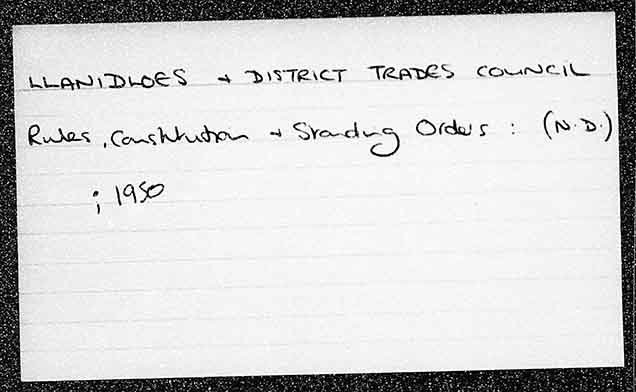 LLANIDLOES + DISTRICT TRADES COUNCIL
Rules, Constitution + Standing Orders : (N.D.)
; 1950